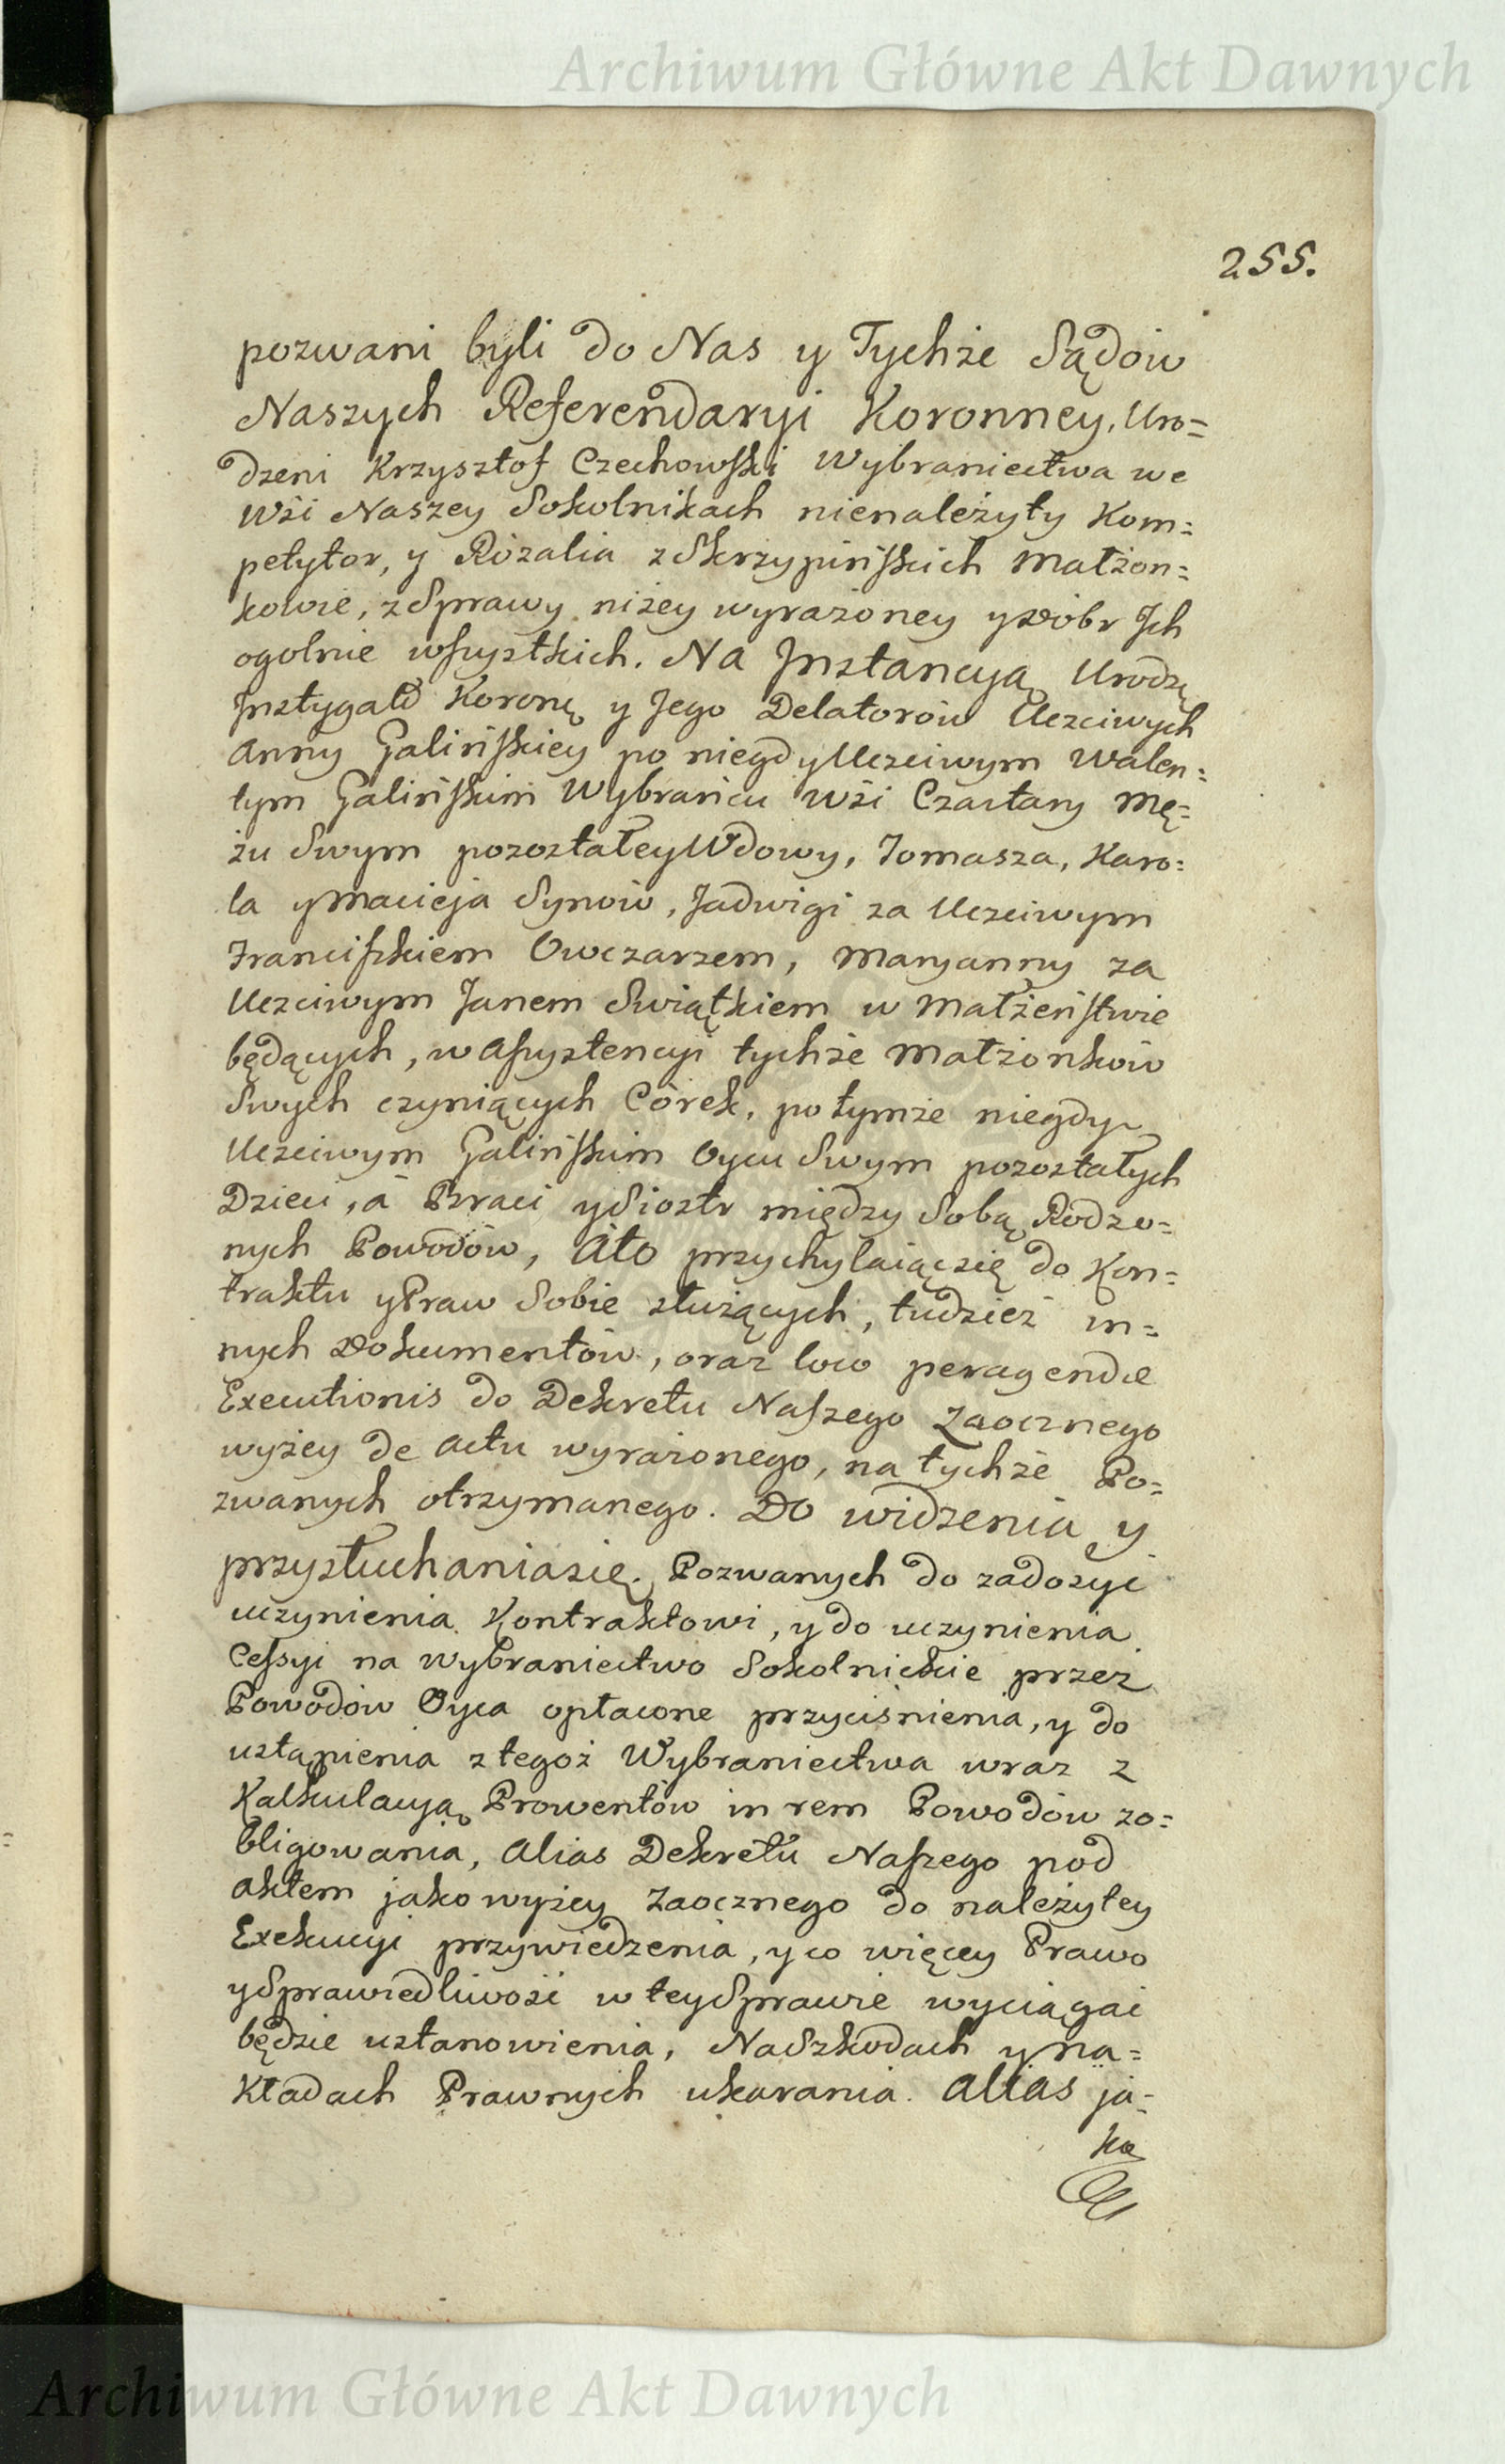 Archiwum Główne Akt Dawnych
255.
pozwani byli do Nas y Tychże Sądów
Naszych Referendaryi Koronney, Uro=
dzeni Krzysztof Czechowski Wybraniectwa we
Wśi Naszey Sokolnikach nienależyty Kom=
petytor, y Rozalia z Skrzypińskich Małżon=
kowie, z Sprawy niżey wyrażoney y Dóbr Jch
ogolnie wszystkich. Na Jnstancyą Urodz
Jnstygatō Koronę y Jego Delatorów Uczciwych
Anny Galińskiey po niegdy Uczciwym Walen=
tym Galińskim Wybrańcu Wśi Czastary Mę=
żu Swym pozostałey Wdowy, Tomasza, Karo=
la y Macieja Synów, Jadwigi za Uczciwym
Franciszkiem Owczarzem, Maryanny za
Uczciwym Janem Swiątkiem w Małżeństwie
będących, w Assystencyi tychże Małżonków
Swych czyniących Córek, po tymże niegdy
Uczciwym Galińskim Oycu Swym pozostałych
Dzieci, á Braci y Siostr między Sobą Rodzo=
nych Powodów, Ato przychylaiąc się do Kon=
traktu y Praw Sobie służących, tudzież in=
nych Dokumentów, oraz loco peragendæ
Executionis do Dekretu Naszego Zaocznego
wyżey de actu wyrażonego, na tychże Po=
zwanych otrzymanego. Do widzenia y
przysłuchania się. Pozwanych do zadosyć
uczynienia Kontraktowi, y do uczynienia
Cessyi na Wybraniectwo Sokolnickie przez
Powodów Oyca opłacone przyciśnienia, y do
ustąpienia z tegoż Wybraniectwa wraz z
Kalkulacyą Prowentów in rem Powodów zo=
bligowania, Alias Dekretu Naszego pod
aktem jako wyżey Zaocznego do należytey
Exekucyi przywiedzenia, y co więcey Prawo
y Sprawiedliwość w tey Sprawie wyciągać
będzie ustanowienia, Na Szkodach y na=
Kładach Prawnych ukarania. Alias ja=
ko
Archiwum Główne Akt Dawnych